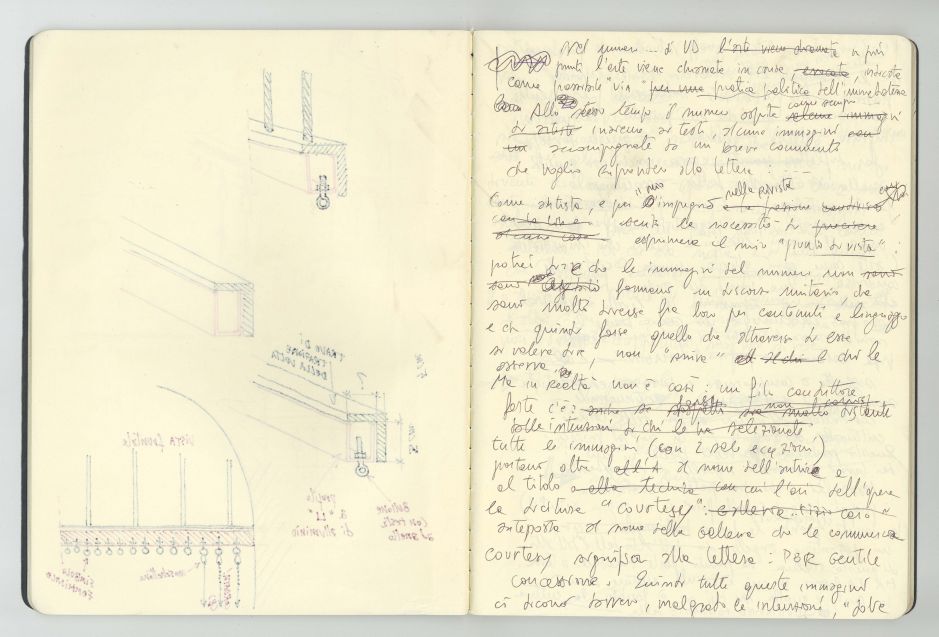 TRAVE DI
TENSIONE
DELLA VOLTA
?
vista frontale
profilo
a "U"
di alluminio
BULLONE
CON TESTA
AD ANELLO
SINGOLA
moschettone
Nel numero ... di VD l'arte viene chiamata in più
punti l'arte viene chiamata in causa, evocata, indicata
come possibile "via" per una pratica politica dell'immediatezza
Allo stesso tempo il numero ospita come sempre alcune immagini
di artiste insieme ai testi, alcune immagini con
un accompagnate da un breve commento
che voglio riprendere alla lettera : ----
Come artista, e per il mio impegno nella rivista
sento la necessità di precisare
alcune cose esprimere il mio "punto di vista" :
potrei dire che le immagini del numero non sono
sono formano un discorso unitario, che
sono molto diverse fra loro per contenuti e linguaggio
e che quindi forse quello che attraverso di esse
si voleva dire, non "arriva" a chi le
osserva.
Ma in realtà non è così : un filo conduttore
forte c'è : anche se soggetti non distante
dalle intenzioni di chi le ha selezionate
tutte le immagini (con 2 sole eccezioni)
portano, oltre al nome dell'autrice e
al titolo dell'opera
la dicitura "courtesy"
anteposta al nome della Galleria che le commercia
courtesy significa alla lettera : PER gentile
concessione. Quindi tutte queste immagini
ci dicono davvero, malgrado le intenzioni, "dove